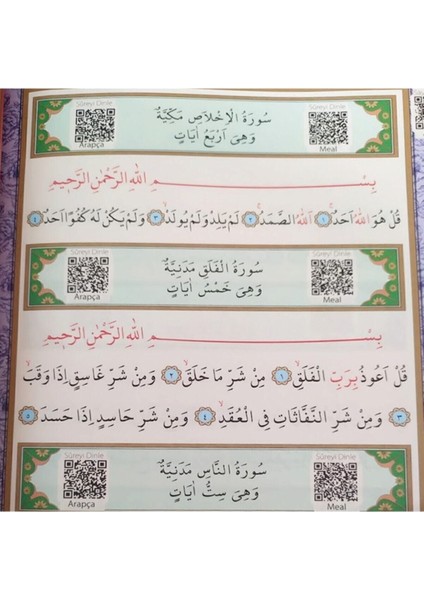 Sûreyi Dinle
Sûreyi Dinle
سُورَةُ الْاِخْلَاصِ مَكِّيَّةٌ
وَهِىَ اَرْبَعُ اٰيَاتٍ
Arapça
Meal
بِسْــــــــــــمِ اللّٰهِ الرَّحْمٰنِ الرَّحٖيمِ
قُلْ هُوَ اللّٰهُ اَحَدٌۚ ﴿١﴾ اَللّٰهُ الصَّمَدُۚ ﴿٢﴾ لَمْ يَلِدْ وَلَمْ يُولَدْۙ ﴿٣﴾ وَلَمْ يَكُنْ لَهُ كُفُوًا اَحَدٌ ﴿٤﴾
Sûreyi Dinle
Sûreyi Dinle
سُورَةُ الْفَلَقِ مَدَنِيَّةٌ
وَهِىَ خَمْسُ اٰيَاتٍ
Arapça
Meal
بِسْــــــــــــمِ اللّٰهِ الرَّحْمٰنِ الرَّحٖيمِ
قُلْ اَعُوذُ بِرَبِّ الْفَلَقِۙ ﴿١﴾ مِنْ شَرِّ مَا خَلَقَۙ ﴿٢﴾ وَمِنْ شَرِّ غَاسِقٍ اِذَا وَقَبَۙ
﴿٣﴾ وَمِنْ شَرِّ النَّفَّاثَاتِ فِى الْعُقَدِۙ ﴿٤﴾ وَمِنْ شَرِّ حَاسِدٍ اِذَا حَسَدَ ﴿٥﴾
Sûreyi Dinle
Sûreyi Dinle
سُورَةُ النَّاسِ مَدَنِيَّةٌ
وَهِىَ سِتُّ اٰيَاتٍ
Arapça
Meal